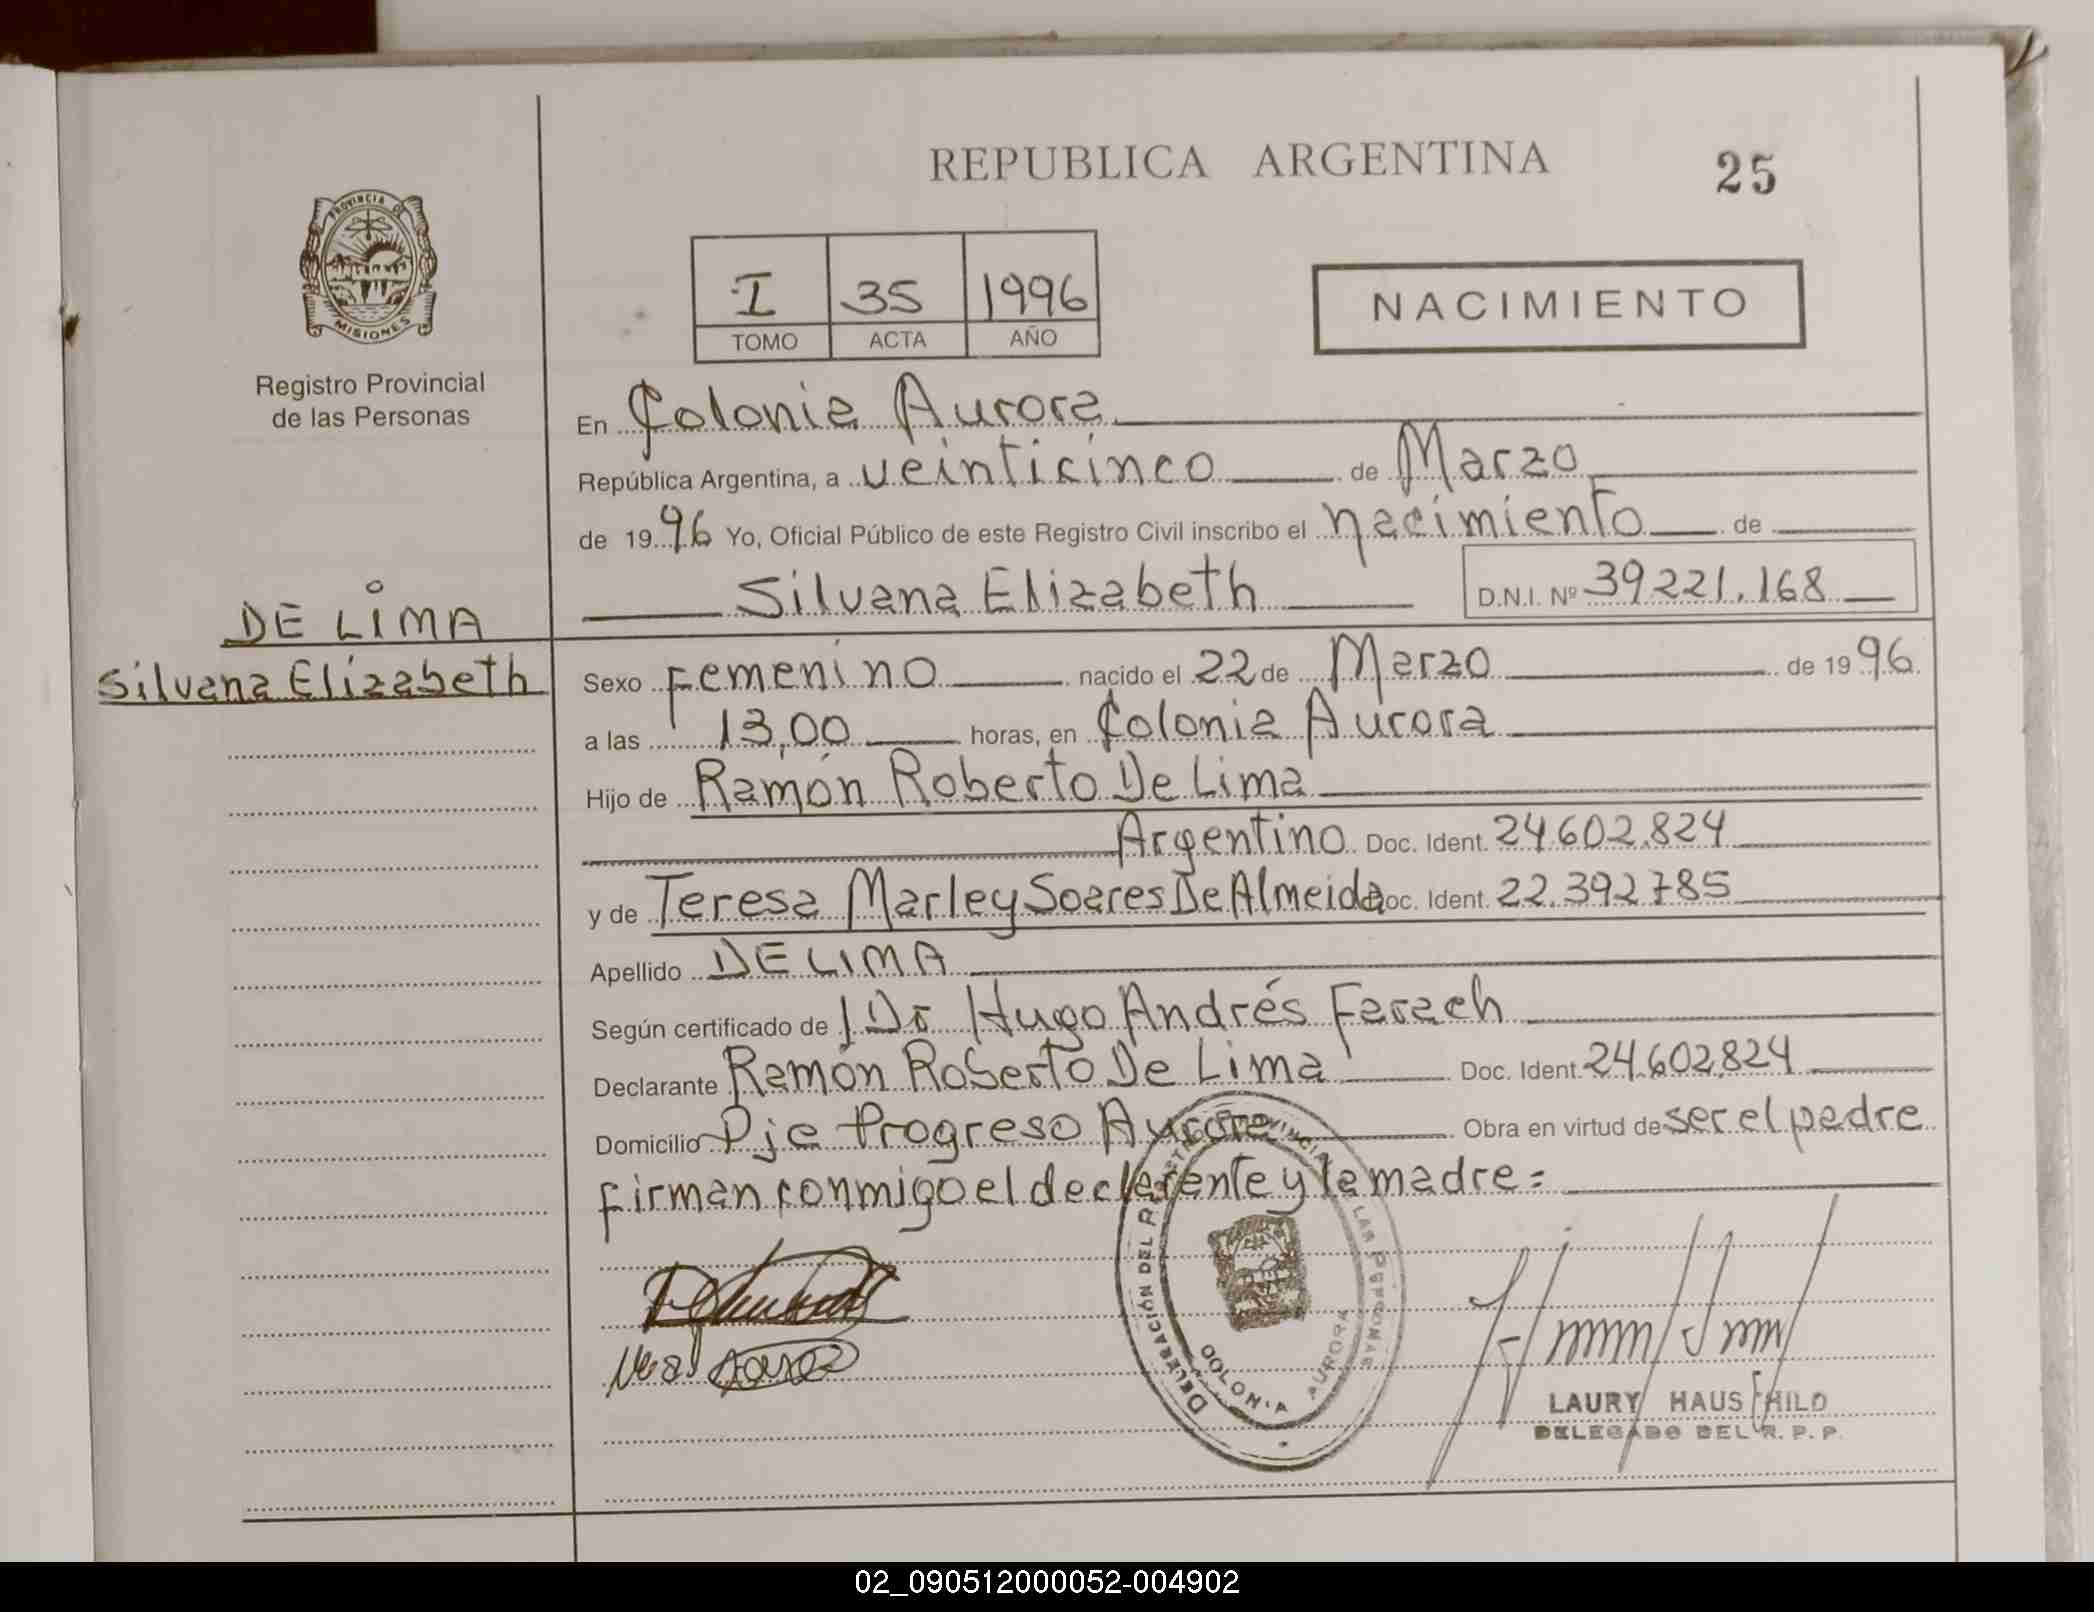 REPUBLICA ARGENTINA
25
PROVINCIA DE
MISIONES
Registro Provincial
de las Personas
I 35 1996
TOMO ACTA AÑO
NACIMIENTO
En Colonia Aurora
República Argentina, a veinticinco de Marzo
de 1996 Yo, Oficial Público de este Registro Civil inscribo el nacimiento de
Silvana Elizabeth D.N.I. Nº 39221.168
DE LIMA
Silvana Elizabeth
Sexo Femenino nacido el 22 de Marzo de 1996.
a las 13,00 horas, en Colonia Aurora
Hijo de Ramón Roberto De Lima
Argentino Doc. Ident. 24.602.824
y de Teresa Marley Soares De Almeida Doc. Ident. 22.392785
Apellido DE LIMA
Según certificado de Dr Hugo Andrés Farach
Declarante Ramón Roberto De Lima Doc. Ident. 24.602.824
Domicilio Pje Progreso Aurora Obra en virtud de ser el padre
Firman conmigo el declarante y la madre=
DELEGACIÓN DEL REGISTRO PROVINCIAL DE LAS PERSONAS
COLONIA AURORA
LAURY HAUSCHILD
DELEGADO DEL R. P. P.
02_090512000052-004902